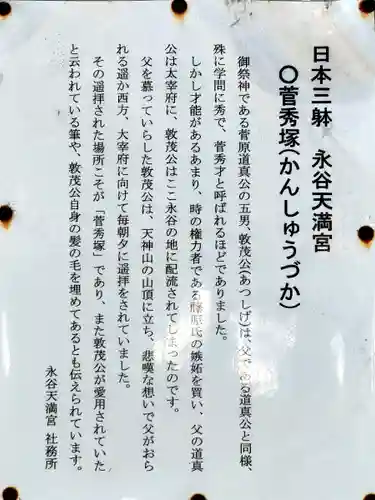 日本三躰　永谷天満宮
〇菅秀塚(かんしゅうづか)
御祭神である菅原道真公の五男、敦茂公(あつしげ)は、父である道真公と同様、
殊に学問に秀で、菅秀才と呼ばれるほどでありました。
しかし才能があるあまり、時の権力者である藤原氏の嫉妬を買い、父の道真
公は太宰府に、敦茂公はここ永谷の地に配流されてしまったのです。
父を慕っていらした敦茂公は、天神山の山頂に立ち、悲嘆な想いで父がおら
れる遥か西方、大宰府に向けて毎朝夕に遥拝をされていました。
その遥拝された場所こそが「菅秀塚」であり、また敦茂公が愛用されていた
と云われている筆や、敦茂公自身の髪の毛を埋めてあるとも伝えられています。
永谷天満宮　社務所